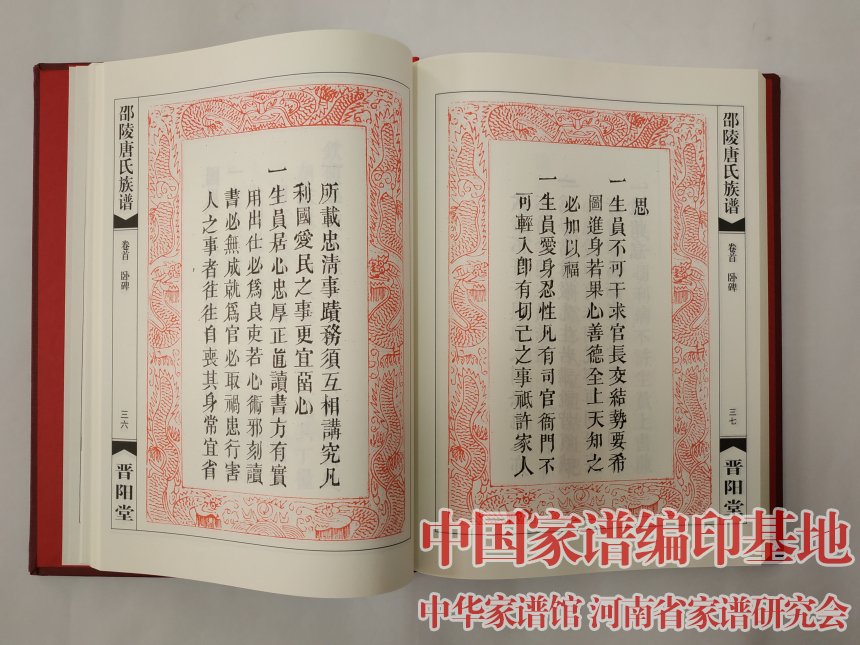 邵陵唐氏族谱
卷首 卧碑
三六
晋阳堂
所載忠清事蹟務須互相講究凡
利國愛民之事更宜留心
一生員居心忠厚正直讀書方有實
用出仕必為良吏若心術邪刻讀
書必無成就為官必取禍患行害
人之事者往往自喪其身常宜省
思
一生員不可干求官長交結勢要希
圖進身若果心善德全上天知之
必加以福
一生員愛身忍性凡有司官衙門不
可輕入即有切己之事祇許家人
邵陵唐氏族谱
卷首 卧碑
三七
晋阳堂
中国家谱编印基地
中华家谱馆 河南省家谱研究会